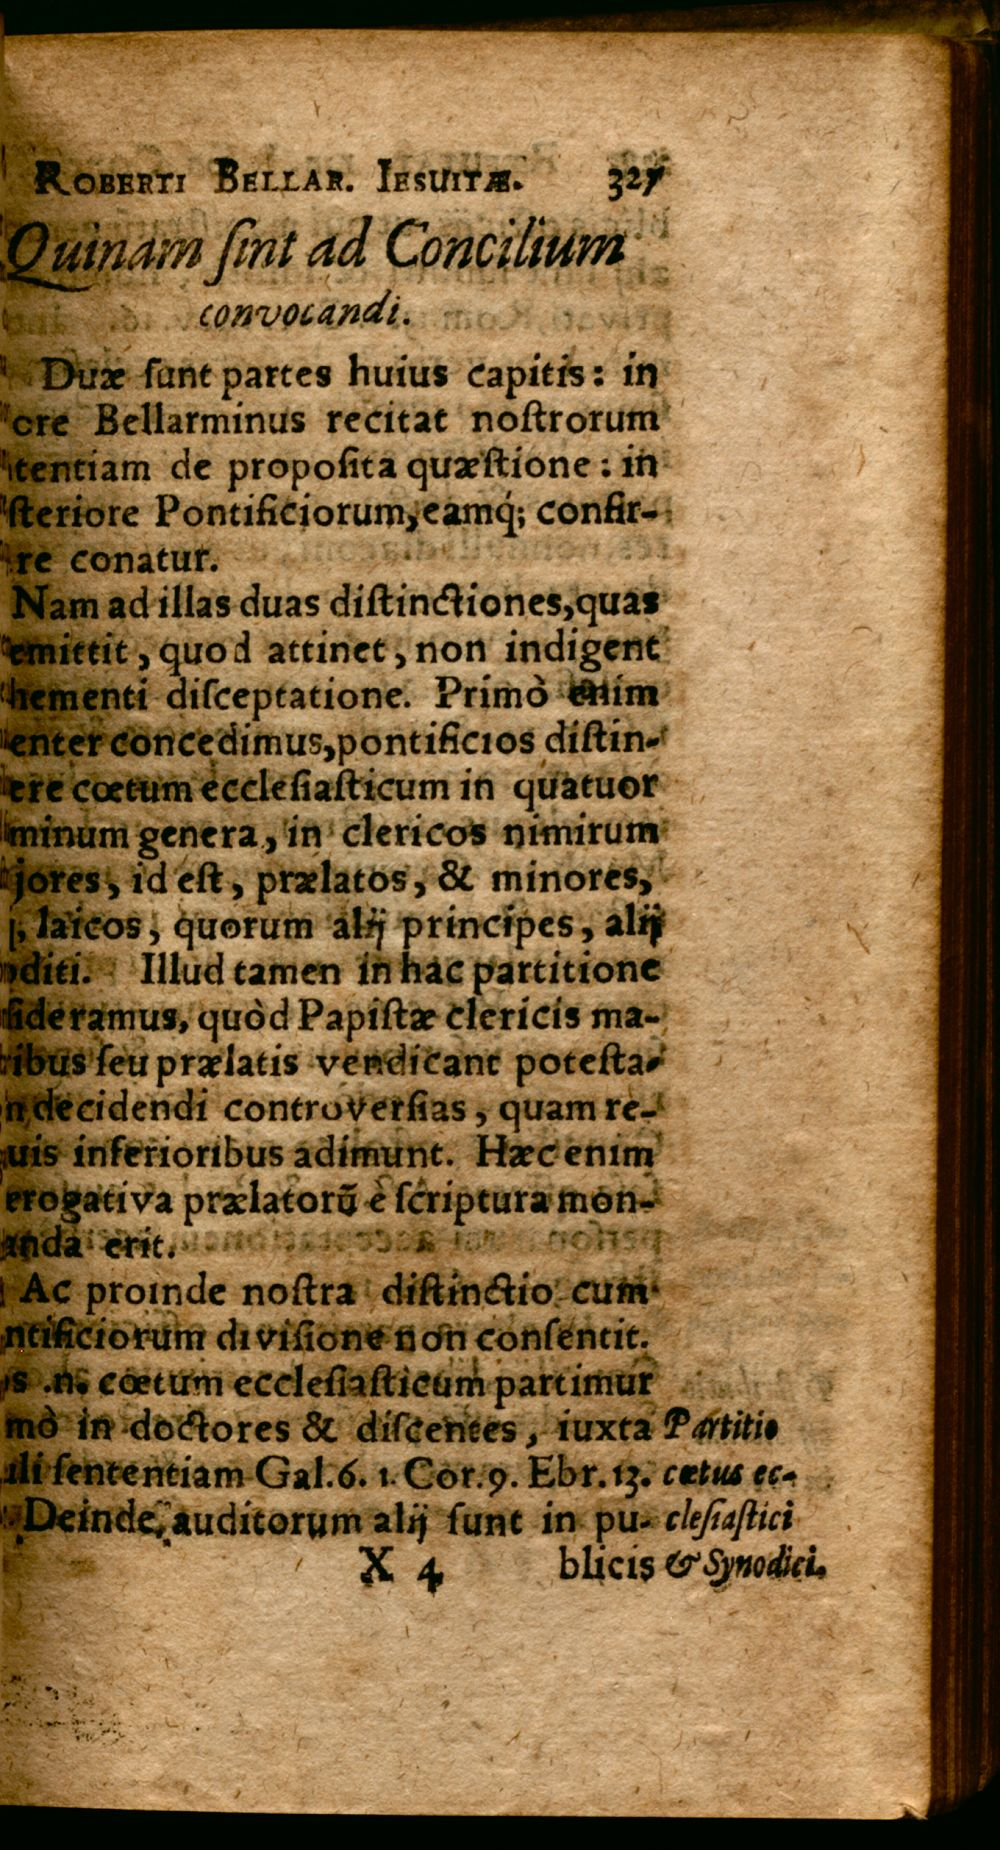 ROBERTI BELLAR. IESUITÆ. 327
Quinam ſint ad Concilium
convocandi.
Duæ ſunt partes huius capitis: in
ore Bellarminus recitat noſtrorum
tentiam de propoſita quæſtione: in
ſteriore Pontificiorum, eamq́; confir-
re conatur.
Nam ad illas duas diſtinctiones, quas
emittit, quod attinet, non indigent
hementi diſceptatione. Primò enim
enter concedimus, pontificios diſtin-
ere cœtum eccleſiaſticum in quatuor
minum genera, in clericos nimirum
jores, id eſt, prælatos, & minores,
, laicos, quorum alij principes, alij
diti. Illud tamen in hac partitione
ſideramus, quòd Papiſtæ clericis ma-
ribus ſeu prælatis vendicant poteſta-
n decidendi controverſias, quam re-
uis inferioribus adimunt. Hæc enim
erogativa prælatorũ è ſcriptura mon-
anda erit.
Ac proinde noſtra diſtinctio cum
ntificiorum diviſione non conſentit.
s .n. cœtum eccleſiaſticum partimur
mò in doctores & diſcentes, iuxta Partitio
uli ſententiam Gal.6. 1. Cor.9. Ebr.13. cœtus ec-
Deinde, auditorum alij ſunt in pu- cleſiaſtici
X 4 blicis & Synodici.